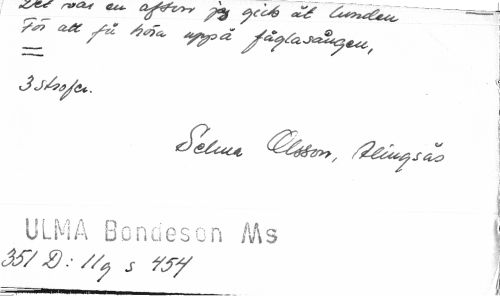 Det var en afton jag gick åt lunden
För att få höra uppå fåglasången,
=
3 strofer.
Selma Olsson, Alingsås
ULMA Bondeson Ms
351 D: 11g s 454